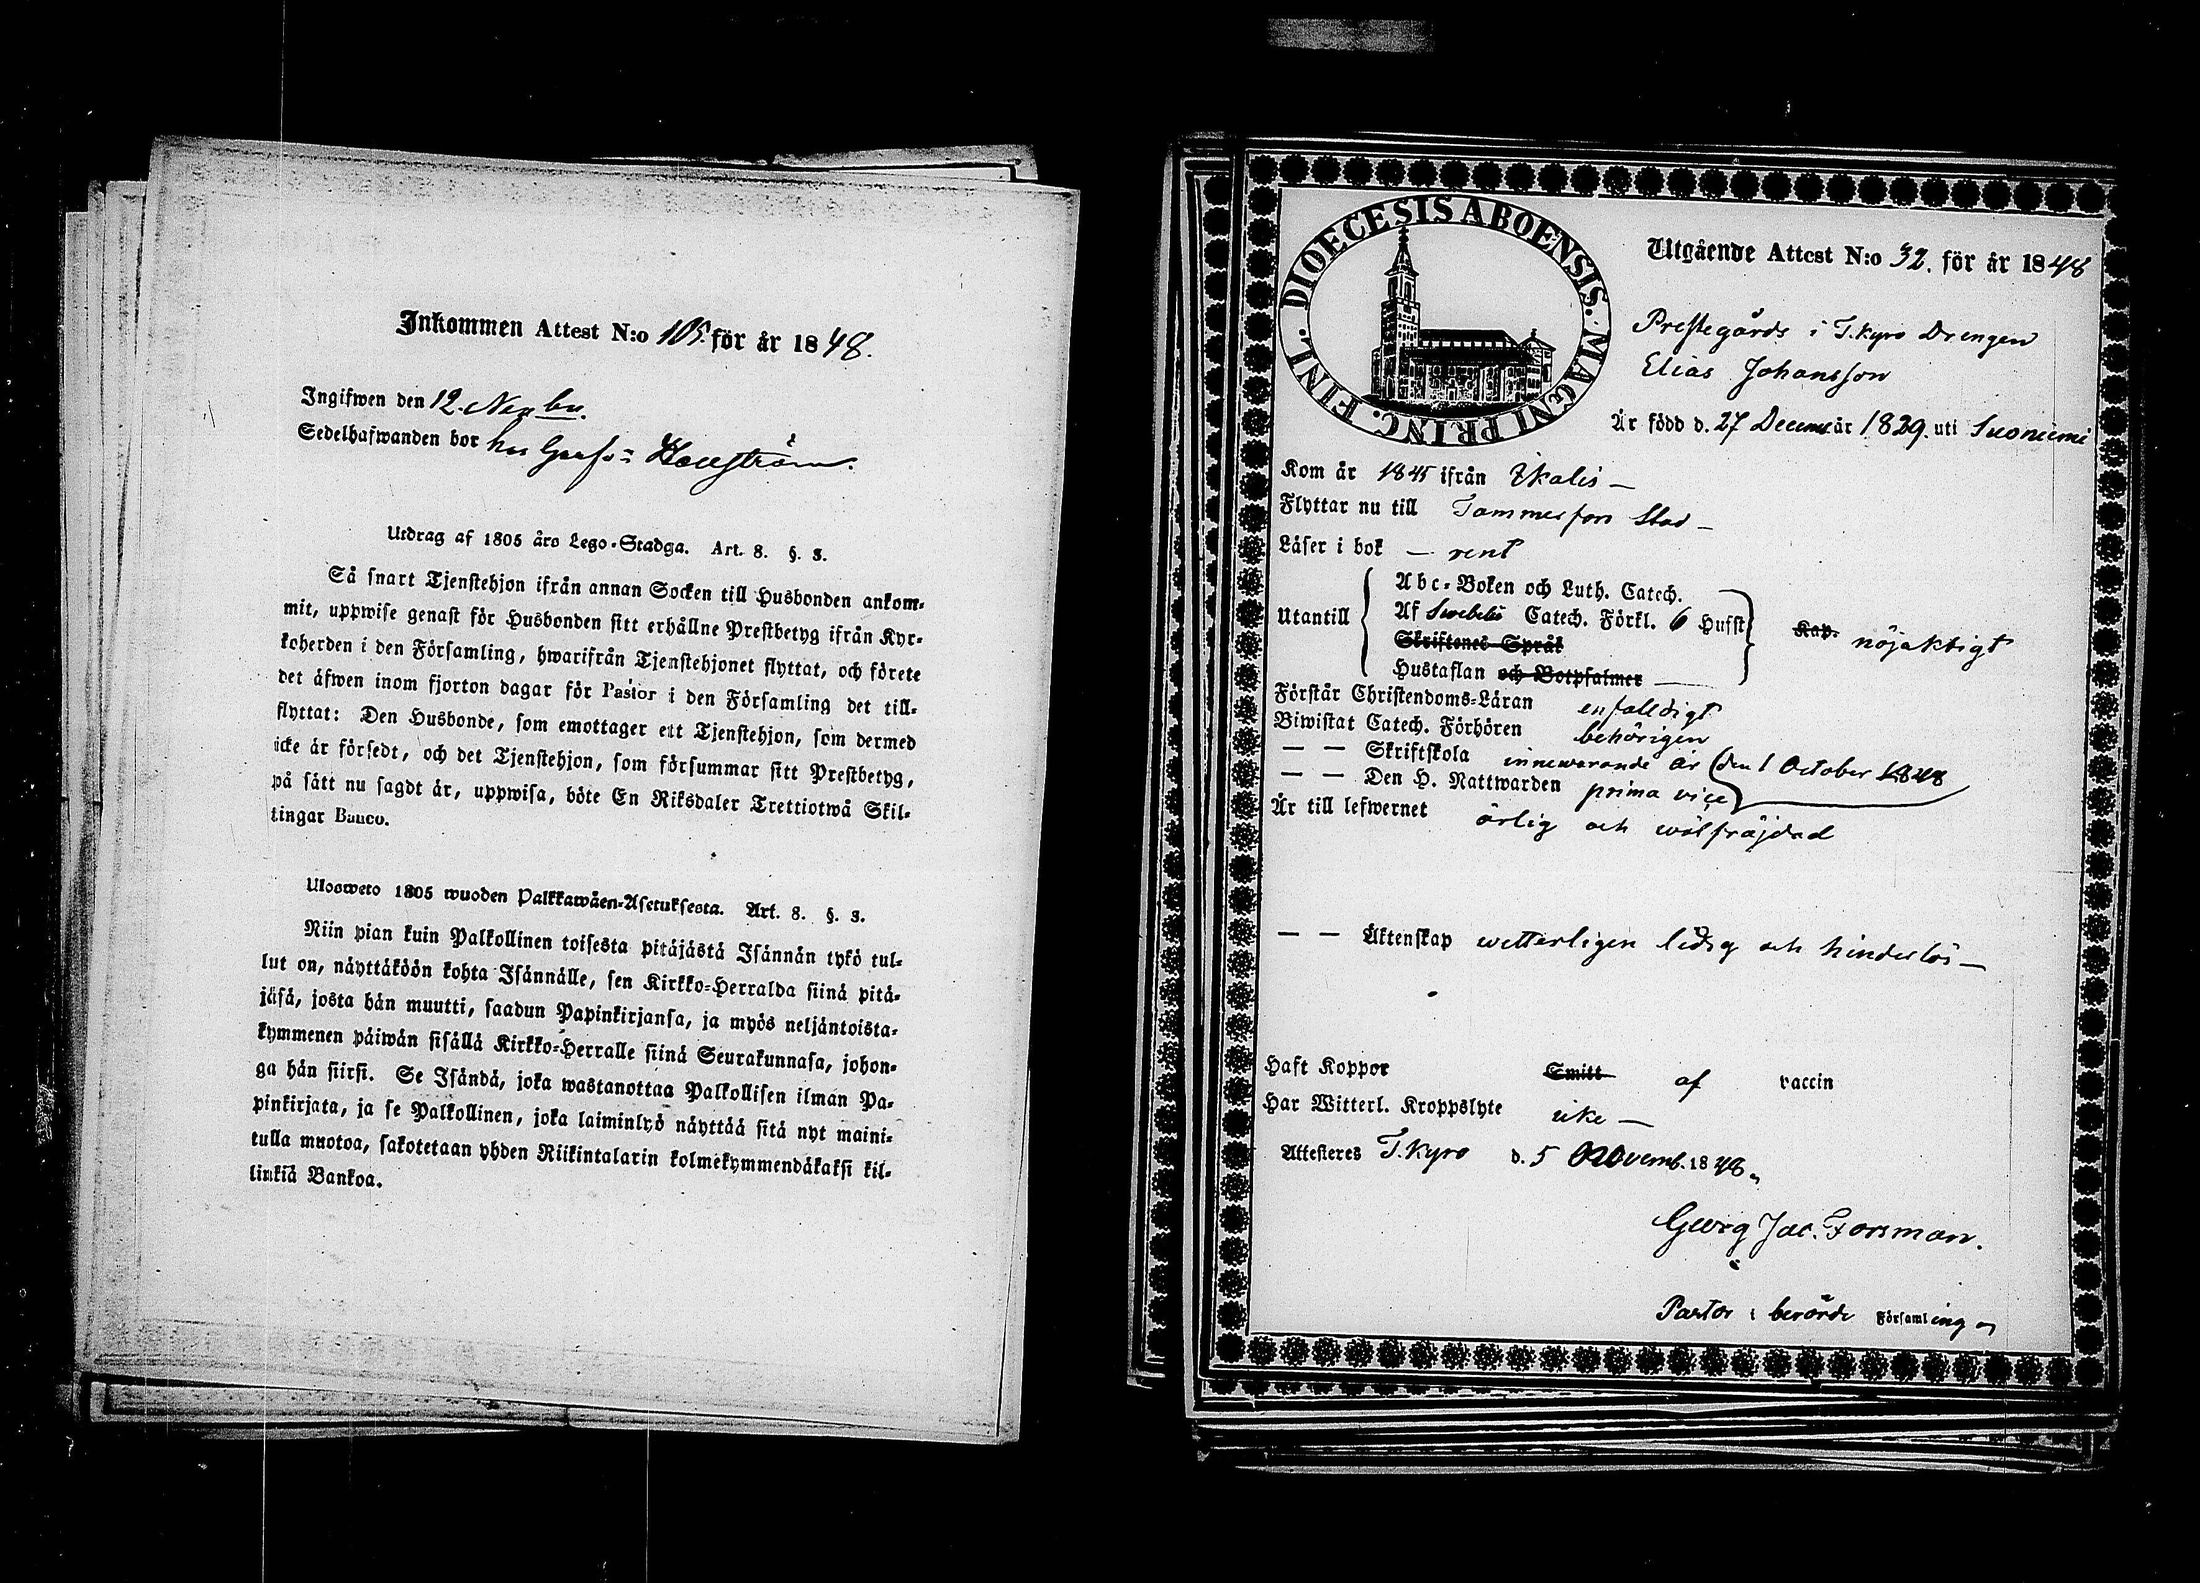 Inkommen Attest N:o 105. för år 1848.
Ingifwen den 12. Novbr.
Sedelhafwanden bor hos
Utdrag af 1805 års Lego-Stadga. Art. 8. §. 3.
Så snart Tjenstehjon ifrån annan Socken till Husbonden ankom-
mit, uppwise genast för Husbonden sitt erhållne Prestbetyg ifrån Kyr-
koherden i den Församling, hwarifrån Tjenstehjonet flyttat, och förete
det äfwen inom fjorton dagar för Pastor i den Församling det till-
flyttat: Den Husbonde, som emottager ett Tjenstehjon, som dermed
icke är försedt, och det Tjenstehjon, som försummar sitt Prestbetyg,
på sätt nu sagdt är, uppwisa, böte En Riksdaler Trettiotwå Skil-
lingar Banco.
Ulosweto 1805 wuoden Palkkawäen-Asetuksesta. Art. 8. §. 3.
Niin pian kuin Palkollinen toisesta pitäjästä Isännän tykö tul-
lut on, näyttäköön kohta Isännälle, sen Kirkko-Herralda siinä pitä-
jäsä, josta hän muutti, saadun Papinkirjansa, ja myös neljäntoista-
kymmenen päiwän sisällä Kirkko-Herralle siinä Seurakunnasa, johon-
ga hän siirsi. Se Isändä, joka wastanottaa Palkollisen ilman Pa-
pinkirjata, ja se Palkollinen, joka laiminlyö näyttää sitä nyt maini-
tulla muotoa, sakotetaan yhden Riikintalarin kolmekymmendäkaksi kil-
linkiä Bankoa.
DIOECESIS ABOENSIS. MAGNI PRINC. FINL.
Utgående Attest N:o 32. för år 1848
Prestegårds i T.kyro Drengen
Elias Johansson
Är född d. 27 Decemb. år 1829. uti Suoniemi
Kom år 1845 ifrån Ikalis —
Flyttar nu till Tammerfors Stad —
Läser i bok — rent
Abc-Boken och Luth. Catech.
Utantill Af Swebelii Catech. Förkl. 6 Hufst Kap. nöjaktigt
Skriftenes Språk
Hustaflan och Botpsalmer —
Förstår Christendoms-Läran enfalldigt
Biwistat Catech. Förhören behörigen
— — Skriftskola innewarande år (den 1 October 1848
— — Den H. Nattwarden prima vice
Är till lefwernet ärlig och wälfräjdad
— — Äktenskap wetterligen ledig och hinderlös —
Haft Koppor Smitt af vaccin
Har Witterl. Kroppslyte icke —
Attesteres T.kyro d. 5 Novemb. 1848.
Georg Jac. Forsman.
Pastor i berörde Församling